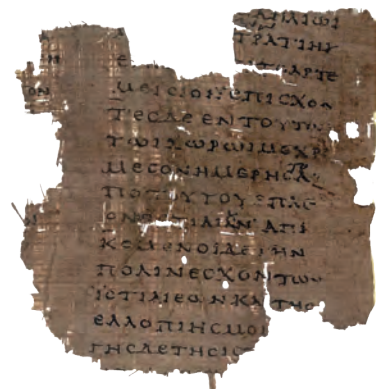 ΗΛΙΩΙ
ΤΡΑΤΙΗ
ΑΡΤΕ
ΜΕΙϹΙΟΝΕΠΙϹΧΟΝ
ΤΕϹΔΕΕΝΤΟΥΤ
ΤΩΙΧΩΡΩΙΜΕΧΡΙ
ΜΕϹΟΝΗΜΕΡΗϹ
ΠΟΤΟΥΤΟΥΕΠΛΕ
ΟΝ ΤΙΑΙΗΝΑΠΙ
ΚΟΜΕΝΟΙΔΕΤΗΝ
ΠΟΛΙΝΕϹΧΟΝΤΩΝ
ΙϹΤΙΑΙΕΩΝΚΑΙΤΗϹ
ΕΛΛΟΠΙΗϹΜΟΙ
ΓΗϹΔΕΤΗϹΙϹ